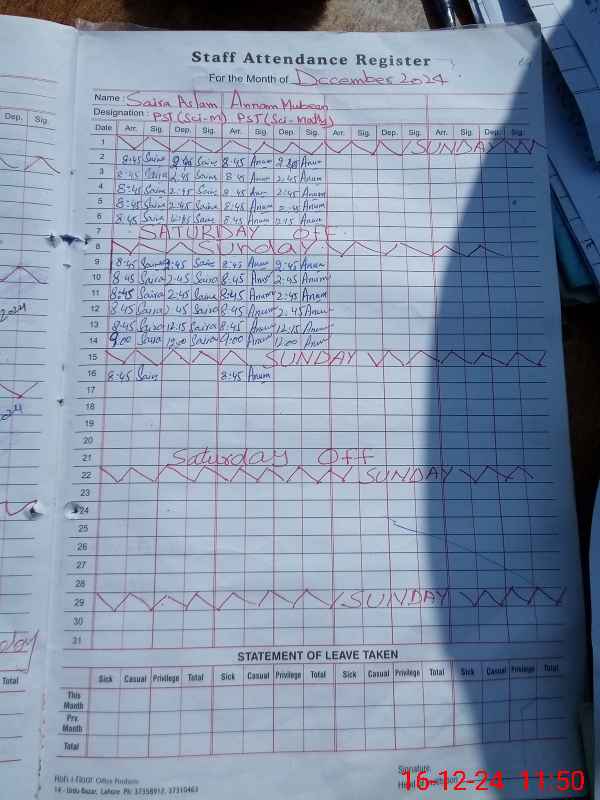 Staff Attendance Register
For the Month of December 2024
Name : Saira Aslam Annam Mubeen
Designation : PST (Sci-m) PST (Sci-math)
Date Arr. Sig. Dep. Sig. Arr. Sig. Dep. Sig. Arr. Sig. Dep. Sig. Arr. Sig. Dep. Sig.
1 SUNDAY
2 8:45 Saira 2:45 Saira 8:45 Anum 2:45 Anum
3 8:45 Saira 2:45 Saira 8:45 Anum 2:45 Anum
4 8:45 Saira 2:45 Saira 8:45 Anum 2:45 Anum
5 8:45 Saira 2:45 Saira 8:45 Anum 2:45 Anum
6 8:45 Saira 12:15 Saira 8:45 Anum 12:15 Anum
7 SATURDAY Off
8 Sunday
9 8:45 Saira 2:45 Saira 8:45 Anum 2:45 Anum
10 8:45 Saira 2:45 Saira 8:45 Anum 2:45 Anum
11 8:45 Saira 2:45 Saira 8:45 Anum 2:45 Anum
12 8:45 Saira 2:45 Saira 8:45 Anum 2:45 Anum
13 8:45 Saira 12:15 Saira 8:45 Anum 12:15 Anum
14 9:00 Saira 12:00 Saira 9:00 Anum 12:00 Anum
15 SUNDAY
16 8:45 Saira 8:45 Anum
17
18
19
20
21 Saturday Off
22 SUNDAY
23
24
25
26
27
28
29 SUNDAY
30
31
STATEMENT OF LEAVE TAKEN
Sick Casual Privilege Total Sick Casual Privilege Total Sick Casual Privilege Total Sick Casual Privilege Total
This Month
Prv. Month
Total
Office Products
14 - Urdu Bazar, Lahore Ph: 37358912, 37310463
Signature
Head of Institution
16-12-24 11:50
Dep. Sig.
2024
Total